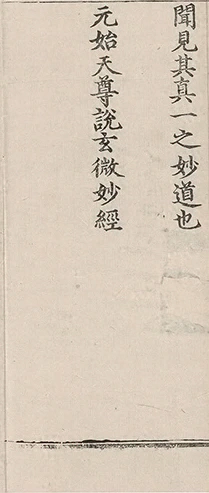 聞見其真一之妙道也
元始天尊說玄微妙經